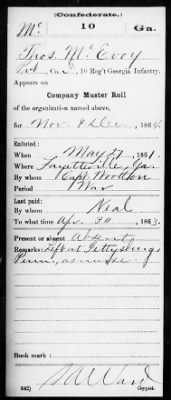 (Confederate.)
Mc 10 Ga.
Thos. McEvoy
Pvt., Co. I, 10 Reg't Georgia Infantry.
Appears on
Company Muster Roll
of the organization named above,
for Nov. & Dec., 1864.
Enlisted:
When May 27, 1861.
Where Fayetteville, Ga.
By whom Capt. Wootton
Period War
Last paid:
By whom Neal
To what time Apr. 30, 1863.
Present or absent Absent
Remarks: Left at Gettysburg
Penn., as nurse.
Book mark:
(642) Copyist.